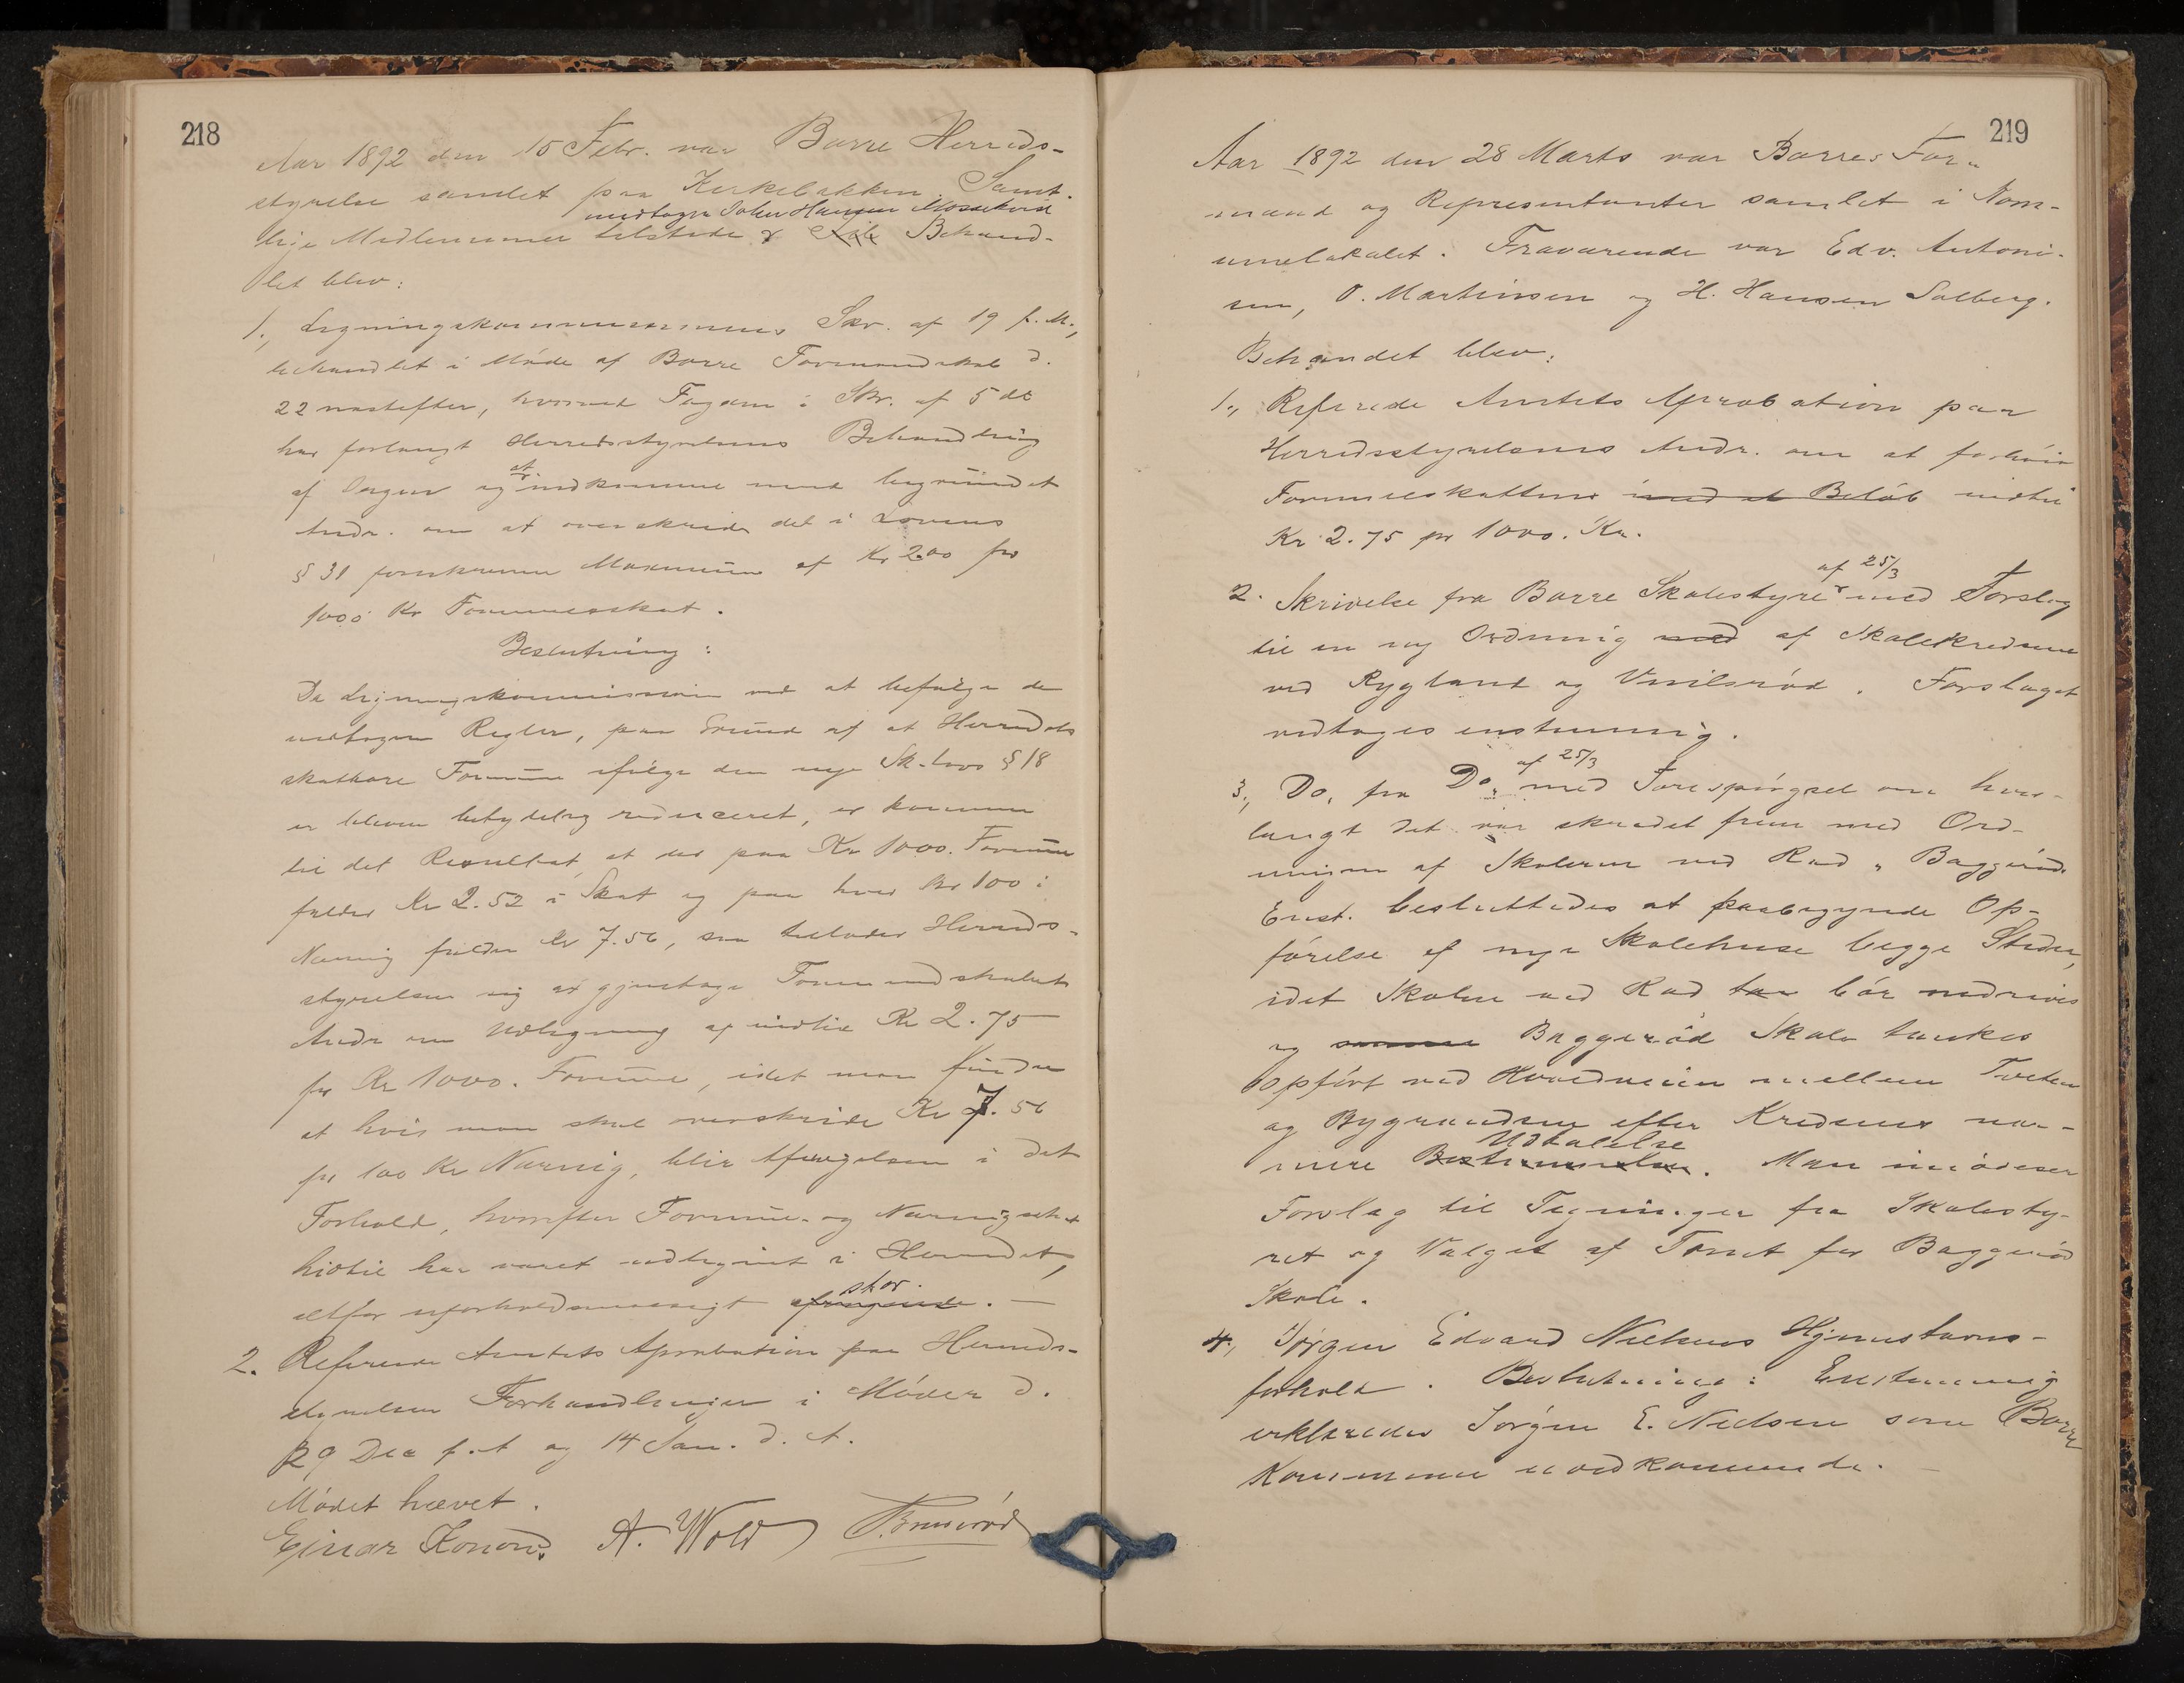 218
Aar 1892 den 15 Febr. var Borre Herreds-
styrelse samlet paa Kirkebakken. Samt-
undtagen Johan Hansen
lige Medlemmer tilstede Behand-
let blev:
1., Ligningskommissionens Skr. af 19 f. M.,
behandlet i Møde af Borre Formandskab d.
22 næstefter, hvornest Fogden i Skr. af 5 ds
har forlangt Herredsstyrelsens Behandling
at
af Sagen og indkomme med begrundet
Andr. om at overskride det i Lovens
§ 31 foreskrevne Maximum af Kr 2.00 pr
1000 Kr Formuesskat.
Beslutning:
Da Ligningskommissionen ved at befølge de
vedtagne Regler, paa Grund af at Herredets
skatbare Formue ifølge den nye Sk.lovs § 18
er bleven betydelig reduceret, er kommen
til det Resultat, at der paa Kr 1000. Formue
falder Kr 2.52 i Skat og paa hver Kr 100 i
Næring falder Kr 7.56, saa tillader Herreds-
styrelsen sig at gjentage Formandskabets
Andr om Udligning af indtil Kr 2.75
pr Kr 1000. Formue, idet man finder
at hvis man skal overskride Kr 7.56
pr 100 Kr Næring, blir Afvigelsen i det
Forhold, hvorefter Formue- og Næringsskat
hidtil har været udlignet i Herredet,
stor.
altfor uforholdsmæssigt afvigende. —
2. Refererede Amtets Aprobation paa Herreds-
styrelsens Forhandlinger i Møder d.
29 Dec f. A og 14 Jan. d. A.
Mødet hævet.
Ejnar Konow. A. Wold
219
Aar 1892 den 28 Marts var Borres For-
mænd og Repræsentanter samlet i Kom-
munelokalet. Fraværende var Edv. Antoni-
sen, O. Martinsen og H. Hansen Solberg.
Behandlet blev:
1., Refererede Amtets Aprobation paa
Herredsstyrelsens Andr. om at forhøie
Formuesskatten med et Beløb indtil
Kr 2.75 pr 1000. Kr.
af 25/3
2. Skrivelse fra Borre Skolestyre med Forslag
til en ny Ordning med af Skolekredsene
ved Rygland og . Forslaget
vedtoges enstemmig.
af 25/3
3., Do, fra Do, med Forespørgsel om hvor-
langt det var skredet frem med Ord-
ningen af Skolerne ved Rød " Baggerød.
Enst. besluttedes at paabegynde Op-
førelse af nye Skolehuse begge Steder,
idet Skolen ved Rød bør nedrives
og samme Baggerød Skole tænkes
opført ved Hovedveien mellem Tveten
og Bygrændsen efter Kredsens nær-
Udtalelse
mere Bestemmelse. Man imødeser
Forslag til Tegninger fra Skolesty-
ret og Valget af Tomt for Baggerød
Skole.
4., Jørgen Edvard Nielsens Hjemstavns-
forhold. Beslutning: Enstemmig
erklæredes Jørgen E. Nielsen som Borre
Kommune uvedkommende. —